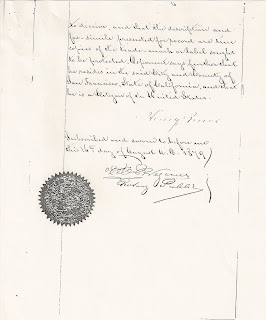 to deceive, and that the description and
fac-simile presented for record are true
copies of the trade-mark or label sought
to be protected. Deponent says further that
he resides in the said City and County of
San Francisco, State of California, and that
he is a citizen of the United States.
Henry
Subscribed and sworn to before me
this 16th day of August A.D. 1879
Notary Public